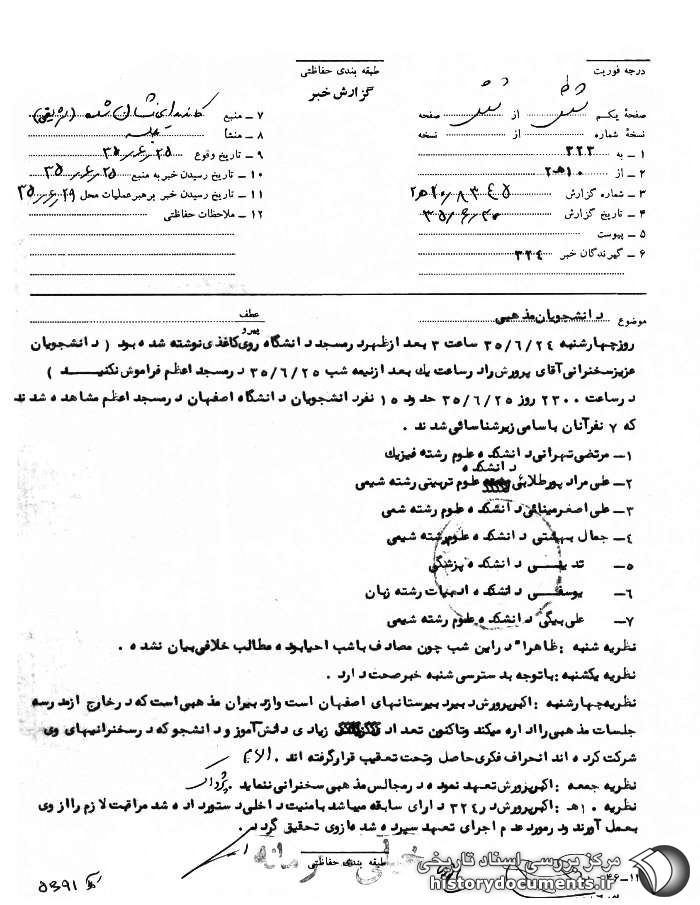 درجه فوریت
طبقه بندی حفاظتی
گزارش خبر
صفحهٔ یکم از صفحه
نسخهٔ شماره از نسخه
۱ ــ به ۳۲۳
۲ ــ از ۱۰هـ۲
۳ ــ شماره گزارش
۴ ــ تاریخ گزارش
۵ ــ پیوست
۶ ــ گیرندگان خبر ۳۲۴
۷ ــ منبع
۸ ــ منشأ
۹ ــ تاریخ وقوع ۳۵/۶/۲۵
۱۰ ــ تاریخ رسیدن خبر به منبع ۳۵/۶/۲۵
۱۱ ــ تاریخ رسیدن خبر برهبرعملیات محل ۳۵/۶/۲۹
۱۲ ــ ملاحظات حفاظتی
موضوع دانشجویان مذهبی
عطف
پیرو
روزچهارشنبه ۳۵/۶/۲۴ ساعت ۳ بعد ازظهردرمسجد دانشگاه روی کاغذی نوشته شده بود ( دانشجویان
عزیزسخنرانی آقای پرورش رادرساعت یك بعد ازنیمه شب ۳۵/۶/۲۵ درمسجد اعظم فراموش نکنیــد )
درساعت ۲۳۰۰ روز ۳۵/۶/۲۵ حدود ۱۵ نفردانشجویان دانشگاه اصفهان درمسجد اعظم مشاهده شدند
که ۷ نفرآنان باسامی زیرشناسائی شدند .
۱ــ مرتضی تهرانی دانشکده علوم رشته فیزیك
دانشکده
۲ــ علی مراد پورطلابی علوم تربیتی رشته شیمی
۳ــ علی اصغرمینائی دانشکده علوم رشته شمی
۴ــ جمال بهشتی دانشکده علوم رشته شیمی
۵ــ دانشکده پزشکی
۶ــ یوسفــی دانشکده ادبیات رشته زبان
۷ــ علی بیگی دانشکده علوم رشته شیمی
نظریه شنبه : ظاهرا" دراین شب چون مصادف باشب احیابوده مطالب خلافی بیان نشده .
نظریه یکشنبه : باتوجه بدسترسی شنبه خبرصحت دارد .
نظریه چهارشنبه : اکبرپرورش دبیردبیرستانهای اصفهان است وازدبیران مذهبی است که درخارج ازمدرسه
جلسات مذهبی رااداره میکند وتاکنون تعداد زیادی دانش آموز و دانشجو که درسخنرانیهای وی
شرکت کرده اند انحراف فکری حاصل وتحت تعقیب قرارگرفته اند .
نظریه جمعه : اکبرپرورش تعهد نموده درمجالس مذهبی سخنرانی ننماید .
نظریه ۱۰هـ : اکبرپرورش در۳۲۴ دارای سابقه میباشد بامنیت داخلی دستورداده شد مراقبت لازم رااز وی
بعمل آورند ودرمورد عدم اجرای تعهد سپرده شده ازوی تحقیق گردد .
طبقه بندی حفاظتی
خیلی محرمانه
مرکز بررسی اسناد تاریخی
historydocuments.ir